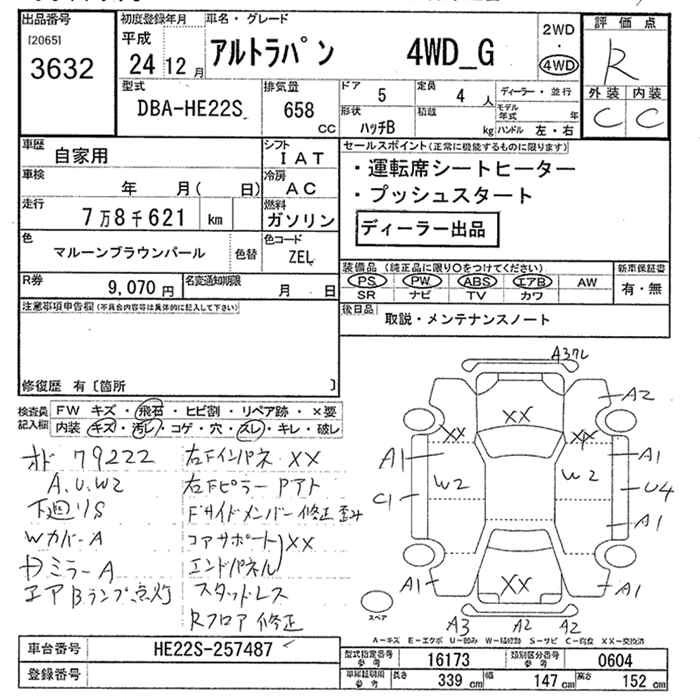 出品番号
[2065]
3632
初度登録年月
平成
24 12 月
車名・グレード
アルトラパン 4WD_G
2WD
・
4WD
評価点
R
外装 内装
C C
型式
DBA-HE22S
排気量
658
cc
ドア 5
定員 4 人
形状 ハッチB
積載 kg
ディーラー・並行
モデル年式 年
ハンドル 左・右
車歴
自家用
シフト
I A T
車検
年 月( 日)
冷房
A C
走行
7万8千621 km
燃料
ガソリン
色
マルーンブラウンパール
色替
色コード
ZEL
R券
9,070 円
名変通知期限
月 日
セールスポイント(正常に機能するものに限ります)
・運転席シートヒーター
・プッシュスタート
ディーラー出品
装備品 (純正品に限り〇をつけてください)
PS PW ABS エアB AW
SR ナビ TV カワ
新車保証書
有・無
後日品
取説・メンテナンスノート
注意事項申告欄(不具合内容等は具体的に記入して下さい)
修復歴 有〔箇所 〕
検査員記入欄
FW キズ・飛石・ヒビ割・リペア跡・×要
内装 キズ・汚レ・コゲ・穴・スレ・キレ・破レ
オド 79222
A.U.W2
下廻りS
Wカバー A
ミラー A
エアBランプ点灯
右下インパネ XX
右下ピラー Pアト
Fサイドメンバー修正歪み
コアサポート)XX
エンドパネル
スタッドレス
Rフロア修正
A3
XX
A2
XX
A1
A1
W2
W2
C1
U4
A1
A1
A1
XX
スペア
A3 A2 A2
A-キズ E-エクボ U-凹み W-補修跡 S-サビ C-腐食 XX-交換済
車台番号
HE22S-257487
登録番号
型式指定番号
参考
16173
類別区分番号
参考
0604
車庫証明用
参考
長さ 339 cm
幅 147 cm
高さ 152 cm